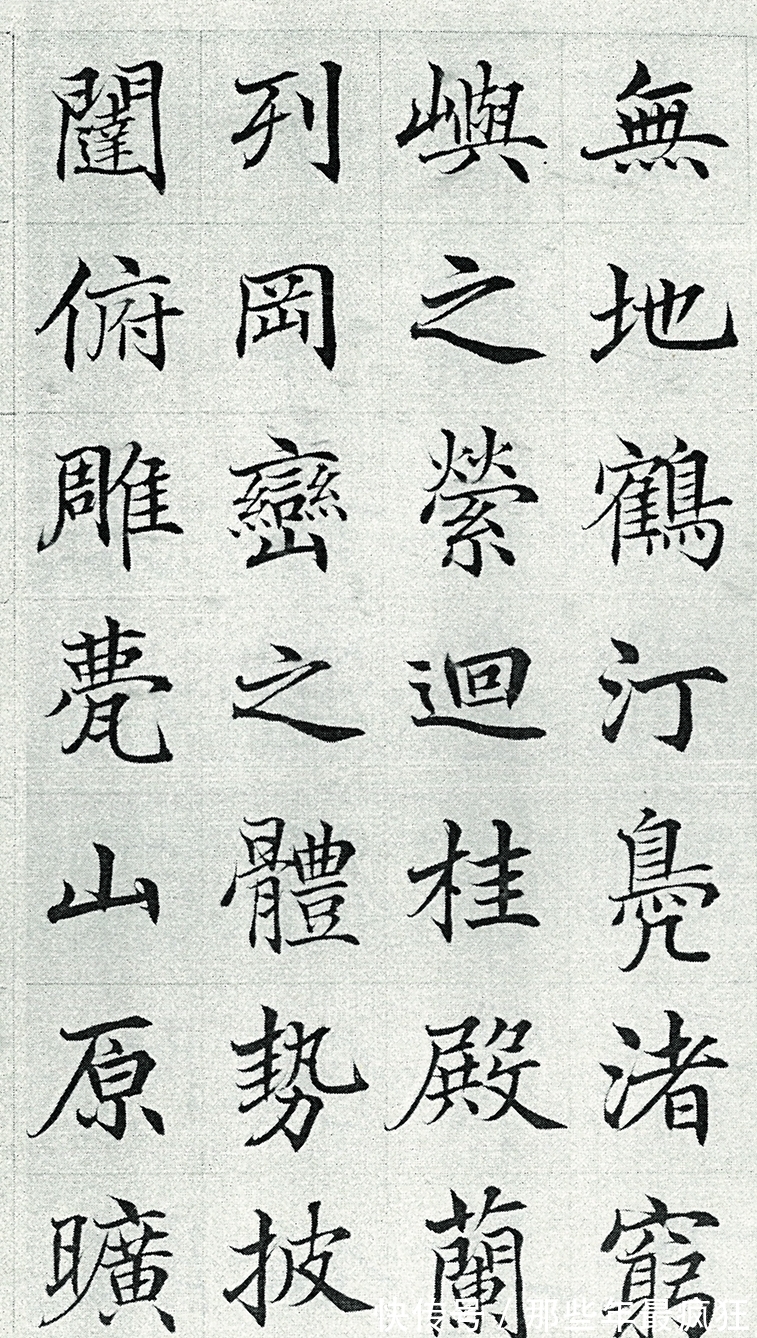 無地鶴汀鳧渚窮
嶼之縈迴桂殿蘭
列岡巒之體勢披
闥俯雕甍山原曠
快传号/那些年最疯狂